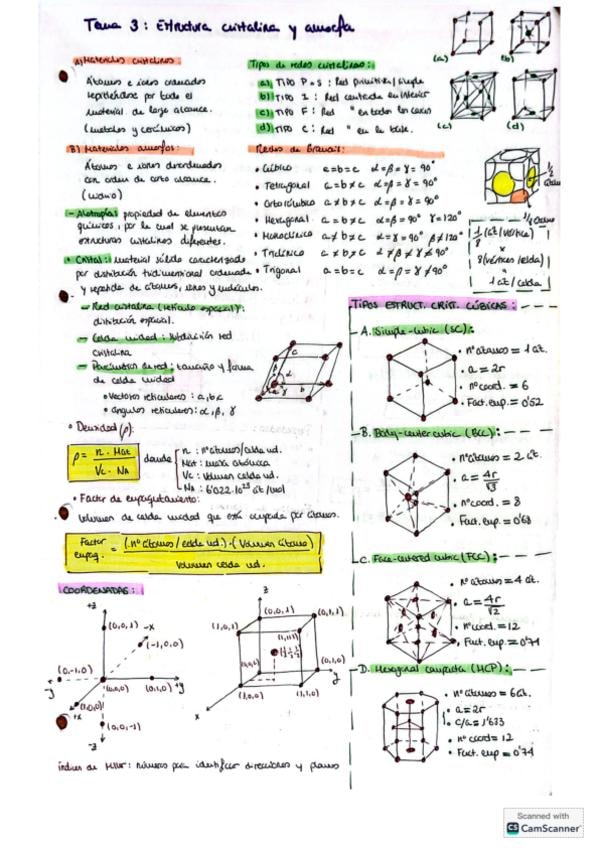 Tema 3: Estructura cristalina y amorfa
A) Materiales cristalinos:
Átomos e iones ordenados
repitiéndose por todo el
material de largo alcance.
(metales y cerámicos)
B) Materiales amorfos:
Átomos e iones desordenados
con orden de corto alcance.
(vidrio)
- Alotropía: propiedad de elementos
químicos, por la cual se presentan
estructuras cristalinas diferentes.
• Cristal: material sólido caracterizado
por distribución tridimensional ordenada
y repetida de átomos, iones y moléculas.
- Red cristalina (retículo espacial):
distribución espacial.
- Celda unidad: subdivisión red
cristalina
- Parámetros de red: tamaño y forma
de celda unidad
• Vectores reticulares: a, b, c
• ángulos reticulares: α, β, γ
• Densidad (ρ):
ρ = n · Mat / Vc · NA
donde
n : nº átomos/celda ud.
Mat: masa atómica
Vc: Volumen celda ud.
NA: 6'022·10²³ át/mol
• Factor de empaquetamiento:
Volumen de celda unidad que está ocupada por átomos.
Factor empaq. = (nº átomos/celda ud.)·(Volumen átomo) / Volumen celda ud.
Tipos de redes cristalinas:
a) TIPO P o S: Red primitiva/simple
b) TIPO I: Red centrada en interior
c) TIPO F: Red " en todas las caras
d) TIPO C: Red " en la base.
(a)
(b)
(c)
(d)
Redes de Bravais:
• Cúbico a=b=c α=β=γ=90°
• Tetragonal a=b≠c α=β=γ=90°
• Ortorrómbico a≠b≠c α=β=γ=90°
• Hexagonal a=b≠c α=β=90° γ=120°
• Monoclínico a≠b≠c α=γ=90° β≠120°
• Triclínico a≠b≠c α≠β≠γ≠90°
• Trigonal a=b=c α=β=γ≠90°
1/2 átomo
1/8 átomo
1/8 (át/vértice)
8(vértices/celda)
1 át/celda
TIPOS ESTRUCT. CRIST. CÚBICAS:
A. Simple-cubic (SC):
• nº átomos = 1 át.
• a = 2r
• nº coord. = 6
• Fact. emp. = 0'52
B. Body-center cubic (BCC):
• nº átomos = 2 át.
• a = 4r/√3
• nº coord. = 8
• Fact. emp. = 0'68
C. Face-centered cubic (FCC):
• nº átomos = 4 át.
• a = 4r/√2
• nº coord. = 12
• Fact. emp. = 0'74
D. Hexagonal compacta (HCP):
• nº átomos = 6 át.
• a = 2r
• c/a = 1'633
• nº coord = 12
• Fact. emp = 0'74
COORDENADAS:
+z
(0,0,1)
-x
(-1,0,0)
(0,-1,0)
-y
(0,0,0)
(0,1,0)
+y
(1,0,0)
+x
(0,0,-1)
-z
z
(0,0,1)
(0,1,1)
(1,0,1)
(1,1,1)
(1/2, 1/2, 1/2)
(0,0,0)
y
(1,0,0)
(1,1,0)
x
índices de Miller: números para identificar direcciones y planos
Scanned with
CS CamScanner